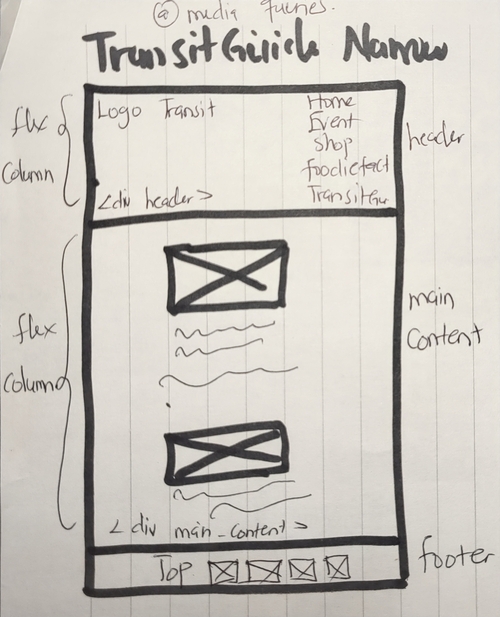 @ media queries.
TransitGuide Narrow
flex
column
Logo Transit
Home
Event
Shop
foodiefact
TransitGu
<div header>
header
flex
column
main
content
<div main-content>
Top
footer